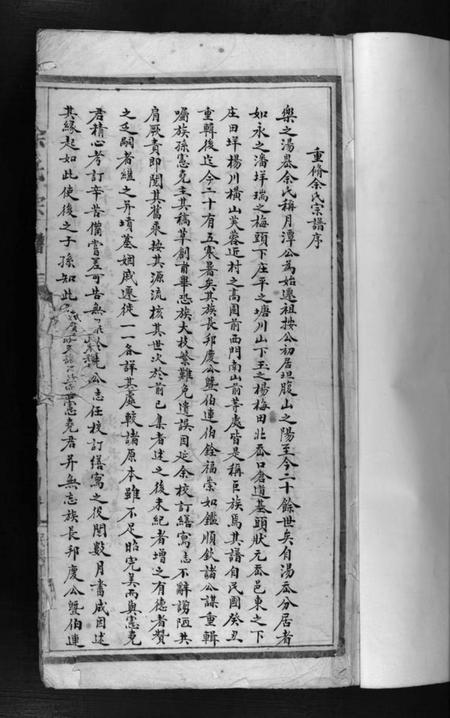 重脩余氏宗譜序
樂之湯嶴余氏稱月潭公為始遷祖按公初居坦腹山之陽至今二十餘世矣自湯嶴分居者
如永之潘垟瑞之梅頭下庄平之塘川山下玉之楊梅田北嶴口倉道基頭狀元嶴邑東之下
庄田垟楊川橫山芙蓉近村之高園前西門南山前等處皆是稱巨族焉其譜自民國癸丑
重輯後迄今二十有五寒暑矣其族長邦慶公暨伯連伯銓福崇如鑑順欽諸公謀重輯
囑族孫憲克主其稿草創甫畢恐族大枝繁難免遺誤因延余校訂繕寫志不辭謭陋共
肩厥責即閱其舊乘按其源流核其世次於前已集者述之後未紀者增之有德者贊
之乏嗣者繼之并墳墓姻戚遷徙一一各詳其處較諸原本雖不足昭完美而與憲克
君積心考訂辛苦備嘗差可告無
公志任校訂繕寫之役閱數月書成因述
其緣起如此使後之子孫知此
憲克君并無忘族長邦慶公暨伯連